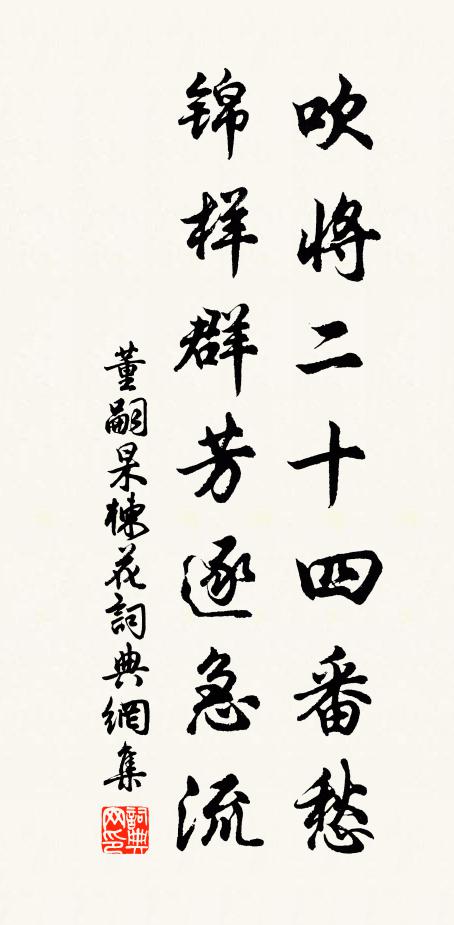 吹将二十四番愁
锦样群芳逐急流
董嗣杲楝花詞典網集
詞典网印